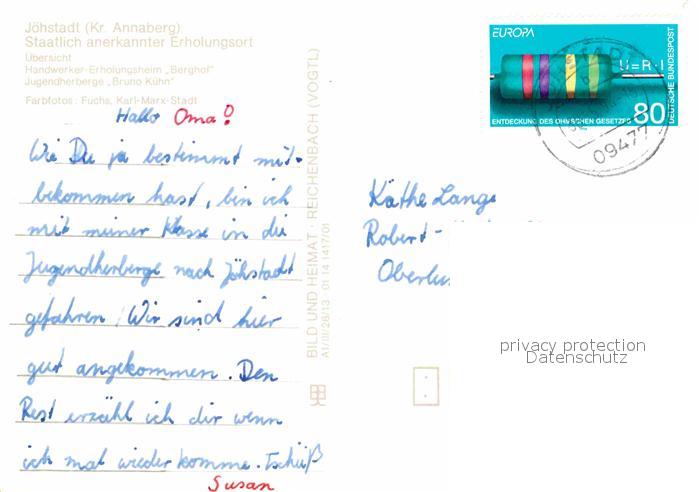 Jöhstadt (Kr. Annaberg)
Staatlich anerkannter Erholungsort
Übersicht
Handwerker-Erholungsheim „Berghof"
Jugendherberge „Bruno Kühn"
Farbfotos: Fuchs, Karl-Marx-Stadt
Hallo Oma!
Wie Du ja bestimmt mit-
bekommen hast, bin ich
mit meiner Klasse in die
Jugendherberge nach Jöhstadt
gefahren. Wir sind hier
gut angekommen. Den
Rest erzähl ich dir wenn
ich mal wieder komme. Tschüß
Susan
BILD UND HEIMAT · REICHENBACH (VOGTL)
A1/III/26/13 01 14 1417/01
EUROPA
U=R·I
ENTDECKUNG DES OHMSCHEN GESETZES
80
DEUTSCHE BUNDESPOST
09477
Käthe Lange
Robert-
privacy protection
Datenschutz